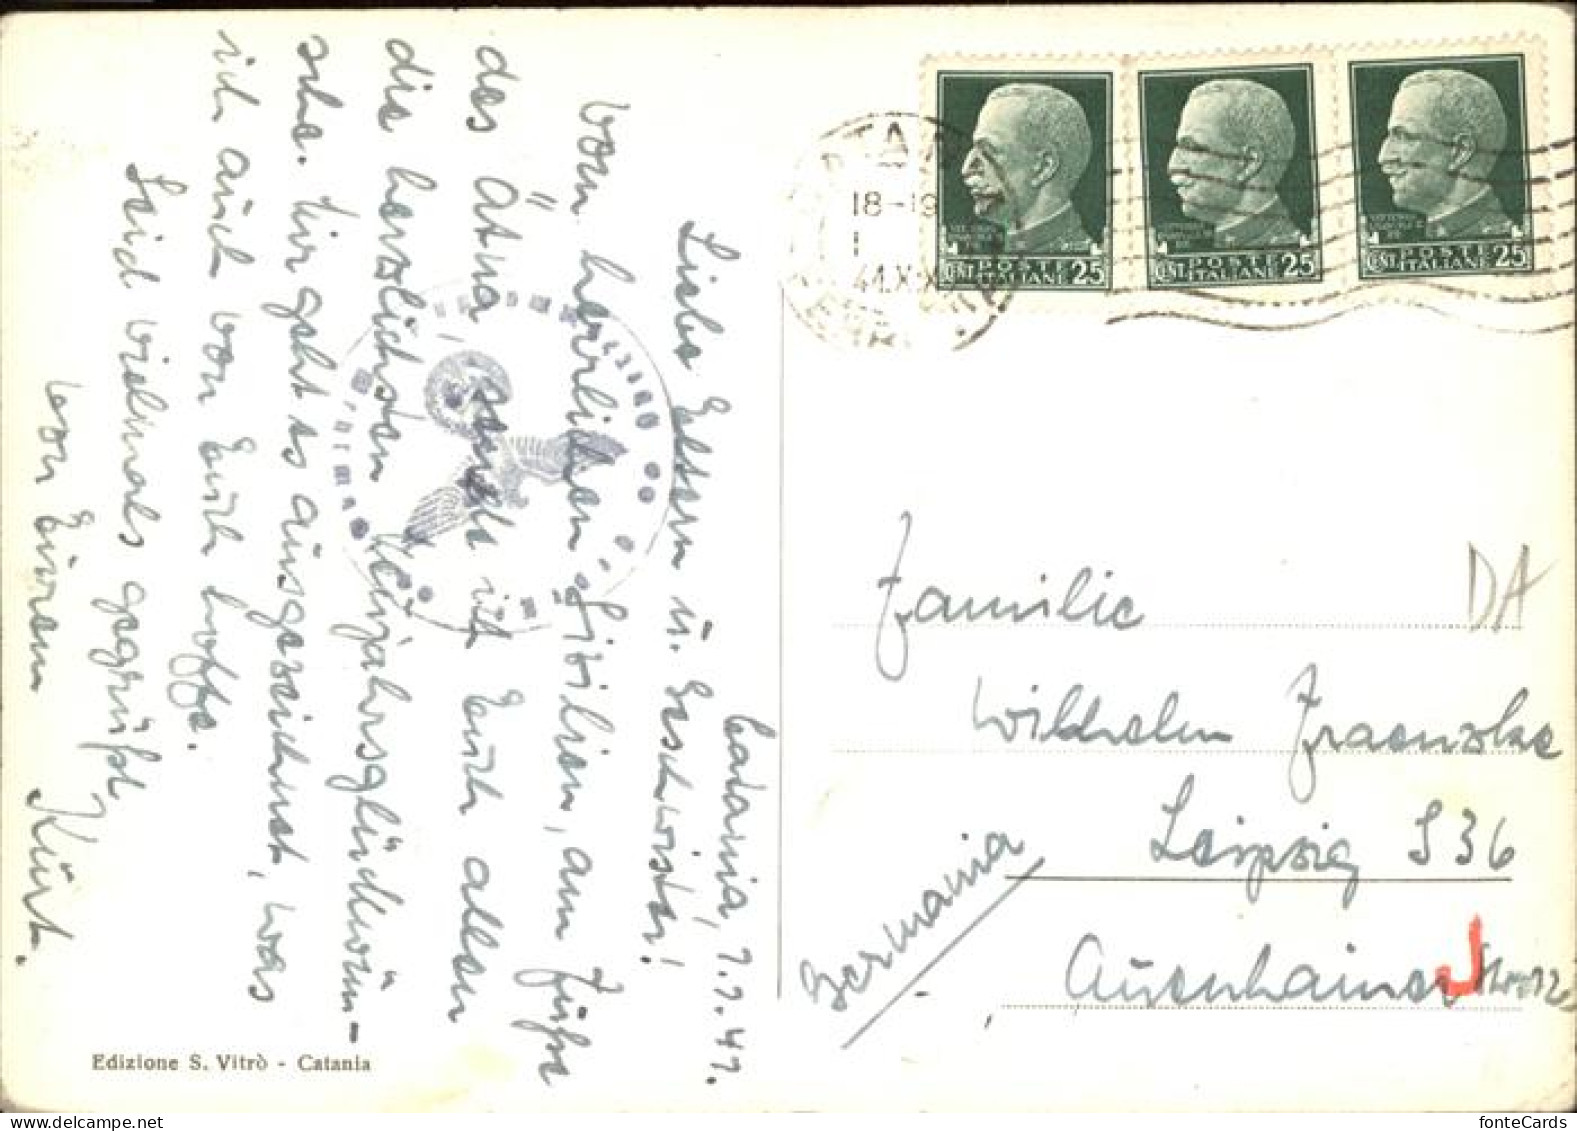 Catania, 1.1.41.
Liebe Eltern u. Geschwister!
Vom herrlichen Sizilien, am Fuße
des Ätna, sende ich Euch allen
die herzlichsten Neujahrsglückwün-
sche. Mir geht es ausgezeichnet, was
ich auch von Euch hoffe.
Seid vielmals gegrüßt
von Eurem Kurt.
Edizione S. Vitrò - Catania
18-19
1
41.XIX
CENT POSTE ITALIANE 25
CENT POSTE ITALIANE 25
CENT POSTE ITALIANE 25
Familie
DA
Wilhelm Fraenzke
Leipzig S 36
Auenhainer Str. 12
J
Germania
fonteCards